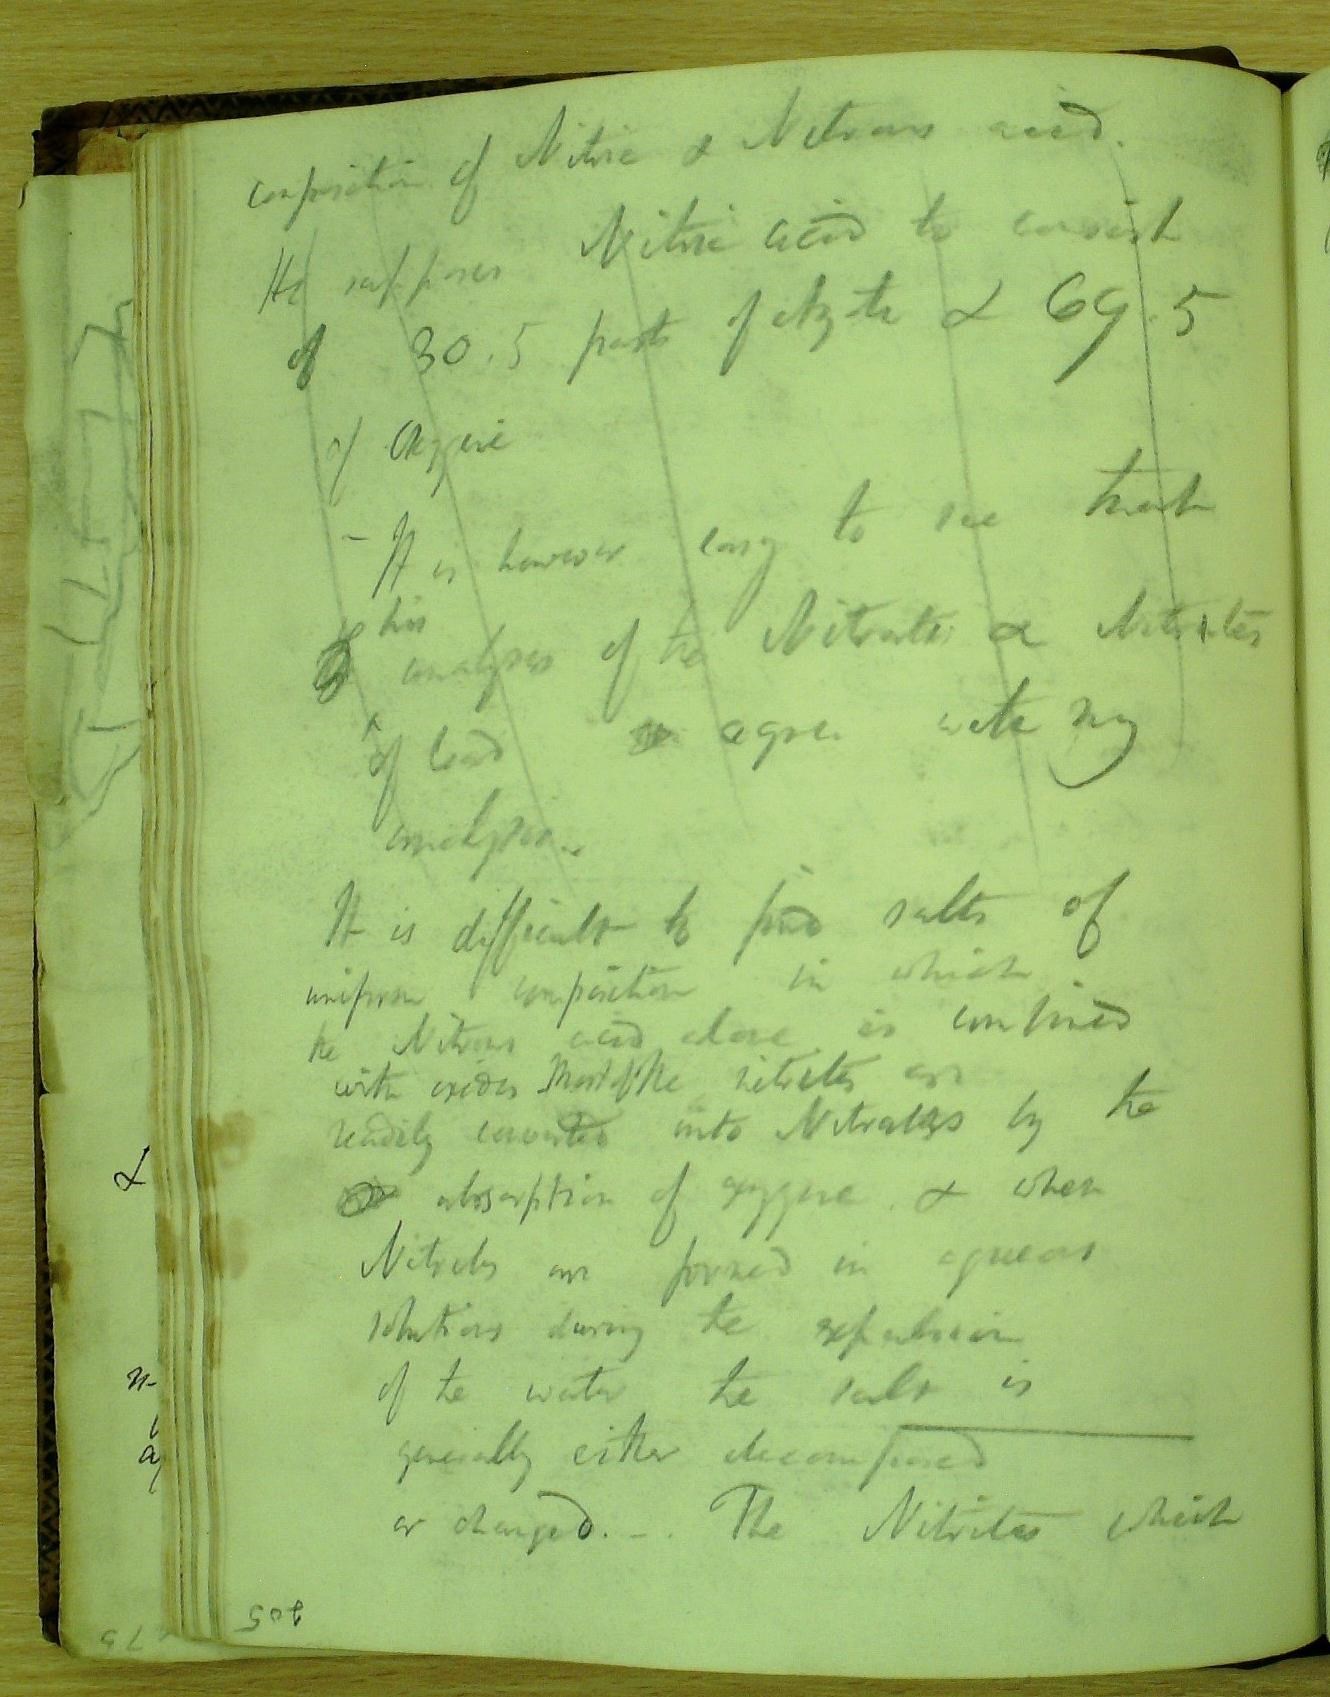 composition of Nitric & Nitrous acid.
He supposes Nitric acid to consist
of 30.5 parts of Azote & 69.5
of Oxygene
- It is however easy to see that
his
analyses of the Nitrates & Nitrites
of lead agree with my
analysis.
It is difficult to find salts of
uniform composition in which
the Nitrous acid alone is combined
with oxides Most of the nitrites are
readily converted into Nitrates by the
absorption of oxygene & when
Nitrites are formed in aqueous
solutions during the expulsion
of the water the salt is
generally either decomposed
or changed. - . The Nitrites which
205
&
n-
a
75